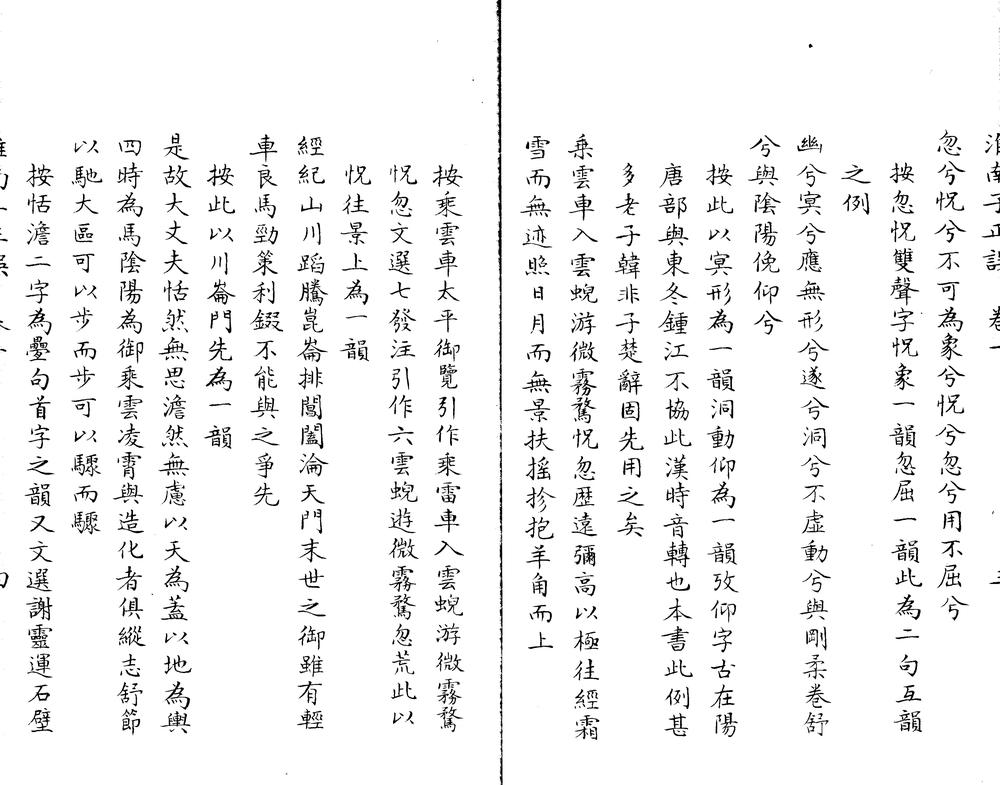 淮南子正誤 卷一
忽兮怳兮不可為象兮怳兮忽兮用不屈兮
按忽怳雙聲字怳象一韻忽屈一韻此為二句互韻
之例
幽兮冥兮應無形兮遂兮洞兮不虛動兮與剛柔卷舒
兮與陰陽俛仰兮
按此以冥形為一韻洞動仰為一韻攷仰字古在陽
唐部與東冬鍾江不協此漢時音轉也本書此例甚
多老子韓非子楚辭固先用之矣
乘雲車入雲蜺游微霧騖怳忽歷遠彌高以極往經霜
雪而無迹照日月而無景扶搖抮抱羊角而上
按乘雲車太平御覽引作乘雷車入雲蜺游微霧騖
怳忽文選七發注引作六雲蜺遊微霧騖忽荒此以
怳往景上為一韻
經紀山川蹈騰崑崙排閶闔淪天門末世之御雖有輕
車良馬勁策利錣不能與之爭先
按此以川崙門先為一韻
是故大丈夫恬然無思澹然無慮以天為蓋以地為輿
四時為馬陰陽為御乘雲凌霄與造化者俱縱志舒節
以馳大區可以步而步可以驟而驟
按恬澹二字為疊句首字之韻又文選謝靈運石壁